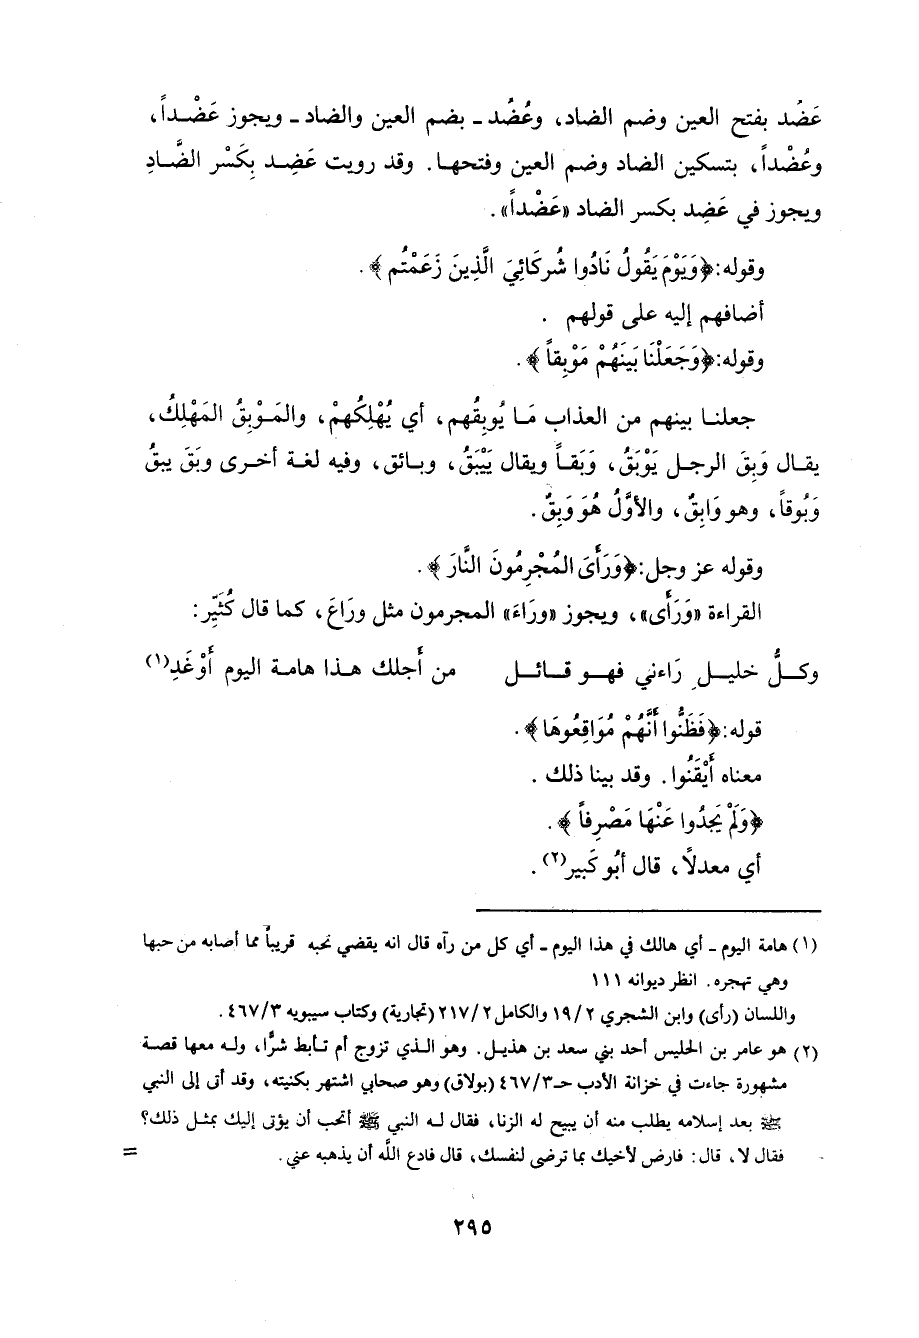 عَضُد بفتح العين وضم الضاد، وعُضُد ـ بضم العين والضاد ـ ويجوز عَضْـداً،
وعُضْداً، بتسكين الضاد وضم العين وفتحها. وقد رويت عَضِـد بِكَسْر الضَّـادِ
ويجوز في عَضِد بكسر الضاد «عَضْداً».
وقوله: ﴿وَيَوْمَ يَقُولُ نَادُوا شُركَائِيَ الَّذِينَ زَعَمْتُم﴾.
أضافهم إليه على قولهم .
وقوله: ﴿وَجَعَلْنَا بَينَهُمْ مَوْبِقاً﴾.
جعلنـا بينهم من العذاب مَـا يُوبِقُهم، أي يُهْلِكُهمْ، والمَـوْبِقُ المَهْلِكُ،
يقـال وَبِقَ الرجـل يَوْبَقُ، وَبَقـاً ويقال يَيْبَقُ، وبـائق، وفيه لغـة أخـرى وبَقَ يبقُ
وَبُوقاً، وهو وَابِقٌ، والأوَّلُ هُوَ وَبِقٌ.
وقوله عز وجل: ﴿وَرَأَىَ المُجْرِمُونَ النَّارَ﴾.
القراءة «وَرَأَى»، ويجوز «ورَاءَ» المجرمون مثل ورَاعَ، كما قال كُثَيِّر:
وكـلُّ خليـلٍ رَاءني فهـو قـائـل من أَجلك هـذا هامـة اليوم أوْ غَدِ(١)
قوله: ﴿فَظَنُّوا أَنَّهُمْ مُوَاقِعُوهَا﴾.
معناه أَيْقَنُوا. وقد بينا ذلك .
﴿وَلَمْ يَجِدُوا عَنْهَا مَصْرِفاً﴾.
أي معدلاً، قال أبُو كَبير(٢).
(١) هامة اليوم ـ أي هالك في هذا اليوم ـ أي كل من رآه قال انه يقضي نحبه قريباً مما أصابه من حبها
وهي تهجره. انظر ديوانه ١١١
واللسان (رأى) وابن الشجري ١٩/٢ والكامل ٢١٧/٢ (تجارية) وكتاب سيبويه ٤٦٧/٣.
(٢) هو عامر بن الحليس أحد بني سعد بن هذيـل. وهو الـذي تزوج أم تـأبط شرًّا، ولـه معها قصـة
مشهورة جاءت في خزانة الأدب حـ٤٦٧/٣ (بولاق) وهو صحابي اشتهر بكنيته، وقد أتى إلى النبي
ﷺ بعد إسلامه يطلب منه أن يبيح له الزنا، فقال لـه النبي ﷺ أتحب أن يؤتى إليك بمثـل ذلك؟
فقال لا، قال: فارض لأخيك بما ترضى لنفسك، قال فادع اللَّه أن يذهبه عني. =
٢٩٥